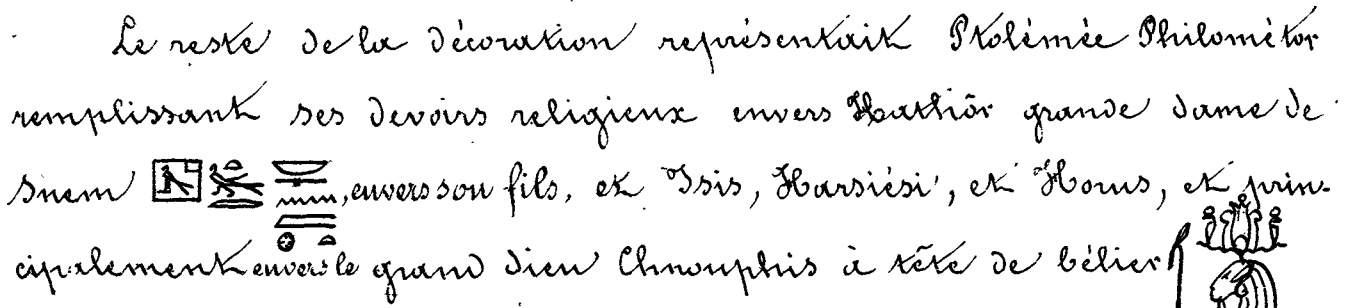 Le reste de la décoration représentait Ptolémée Philométor
remplissant ses devoirs religieux envers Hathôr grande dame de
Snem, envers son fils, et Isis, Harsiési, et Horus, et prin-
cipalement envers le grand dieu Chnouphis à tête de bélier